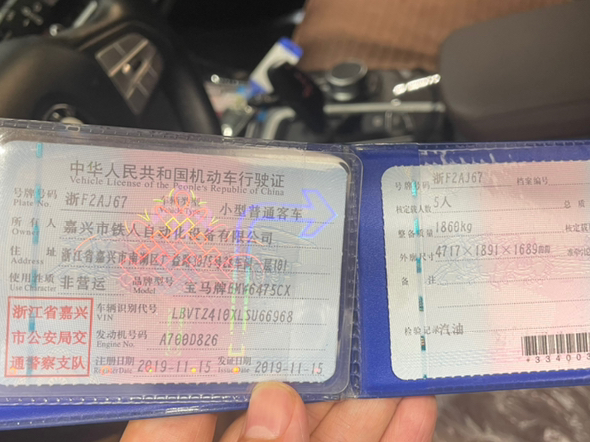 中华人民共和国机动车行驶证
Vehicle License of the People's Republic of China
号牌号码 浙F2AJ67 车辆类型 小型普通客车
Plate No. Vehicle Type
所有人 嘉兴市铁人自动化设备有限公司
Owner
住址 浙江省嘉兴市南湖区广益路1975号2B车间一层101
Address
使用性质 非营运 品牌型号 宝马牌BMW6475CX
Use Character Model
浙江省嘉兴市公安局交通警察支队
车辆识别代号 LBVTZ410XLSU66968
VIN
发动机号码 A700D826
Engine No.
注册日期 2019-11-15 发证日期 2019-11-15
Register Date Issue Date
号牌号码 浙F2AJ67 档案编号
核定载人数 5人 总质
整备质量 1860kg 核定载
外廓尺寸 4717×1891×1689
备注
检验记录 汽油